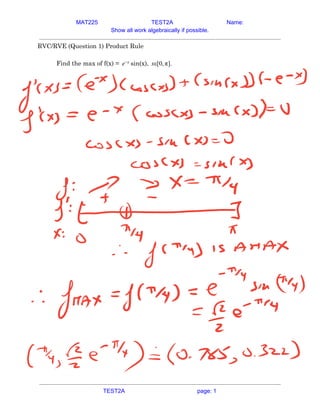 MAT225 TEST2A Name:
Show all work algebraically if possible.
RVC/RVE (Question 1) Product Rule
Find the max of f(x) = e⁻ˣ sin(x), in[0, π].
f'(x) = (e^-x)(cos(x)) + (sin(x))(-e^-x)
f'(x) = e^-x (cos(x) - sin(x)) = 0
cos(x) - sin(x) = 0
cos(x) = sin(x)
f: ↗ ↘ x = π/4
f': + -
x: 0 π/4 π
∴ f(π/4) IS A MAX
∴ f MAX = f(π/4) = e^-π/4 sin(π/4)
= √2/2 e^-π/4
(π/4, √2/2 e^-π/4) ≐ (0.785, 0.322)
TEST2A page: 1